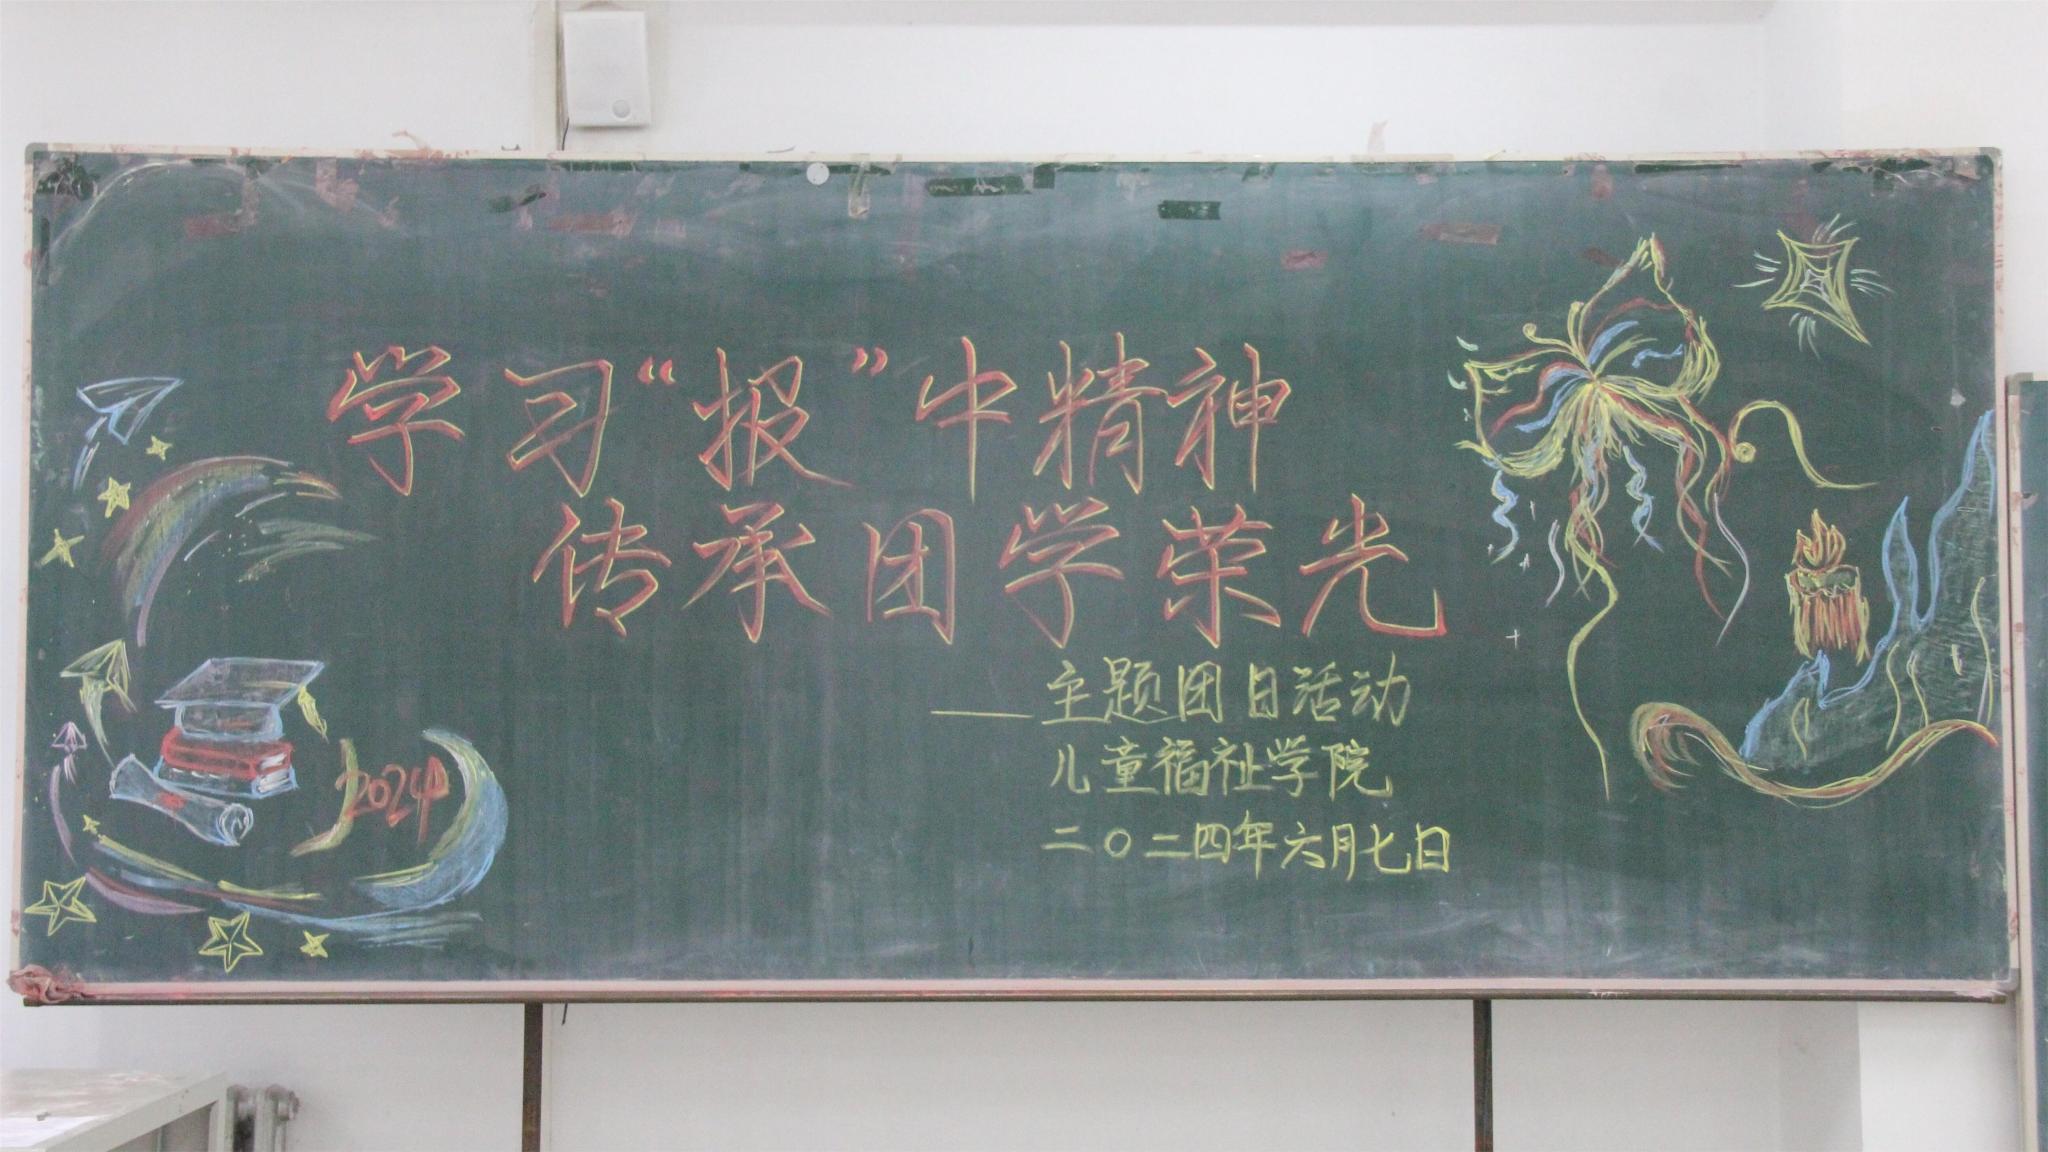 学习“报”中精神
传承团学荣光
——主题团日活动
儿童福祉学院
二〇二四年六月七日
2024